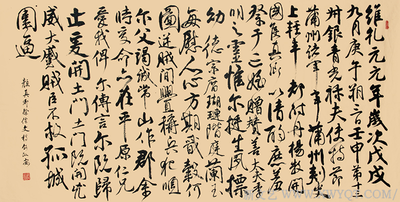 維乾元元年歲次戊戌
九月庚午朔三日壬申第十三
叔銀青光祿夫使持節
蒲州諸軍事蒲州刺史
上輕車都尉丹楊縣開
國侯真卿以清酌庶羞
祭于亡侄贈贊善大夫季
明之靈惟爾挺生夙標
幼德宗廟瑚璉階庭蘭玉
每慰人心方期戩穀何
圖逆賊間釁稱兵犯順
爾父竭誠常山作郡余
時受命亦在平原仁兄
愛我俾爾傳言爾既歸
止爰開土門土門既開兇
威大蹙賊臣不救孤城
圍逼
顏真卿祭侄文